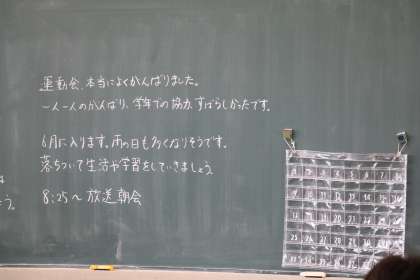 運動会、本当によくがんばりました。
一人一人のがんばり、学年での協力、すばらしかったです。
6月に入ります。雨の日も多くなりそうです。
落ちついて生活や学習をしていきましょう。
8:25~ 放送朝会
う。